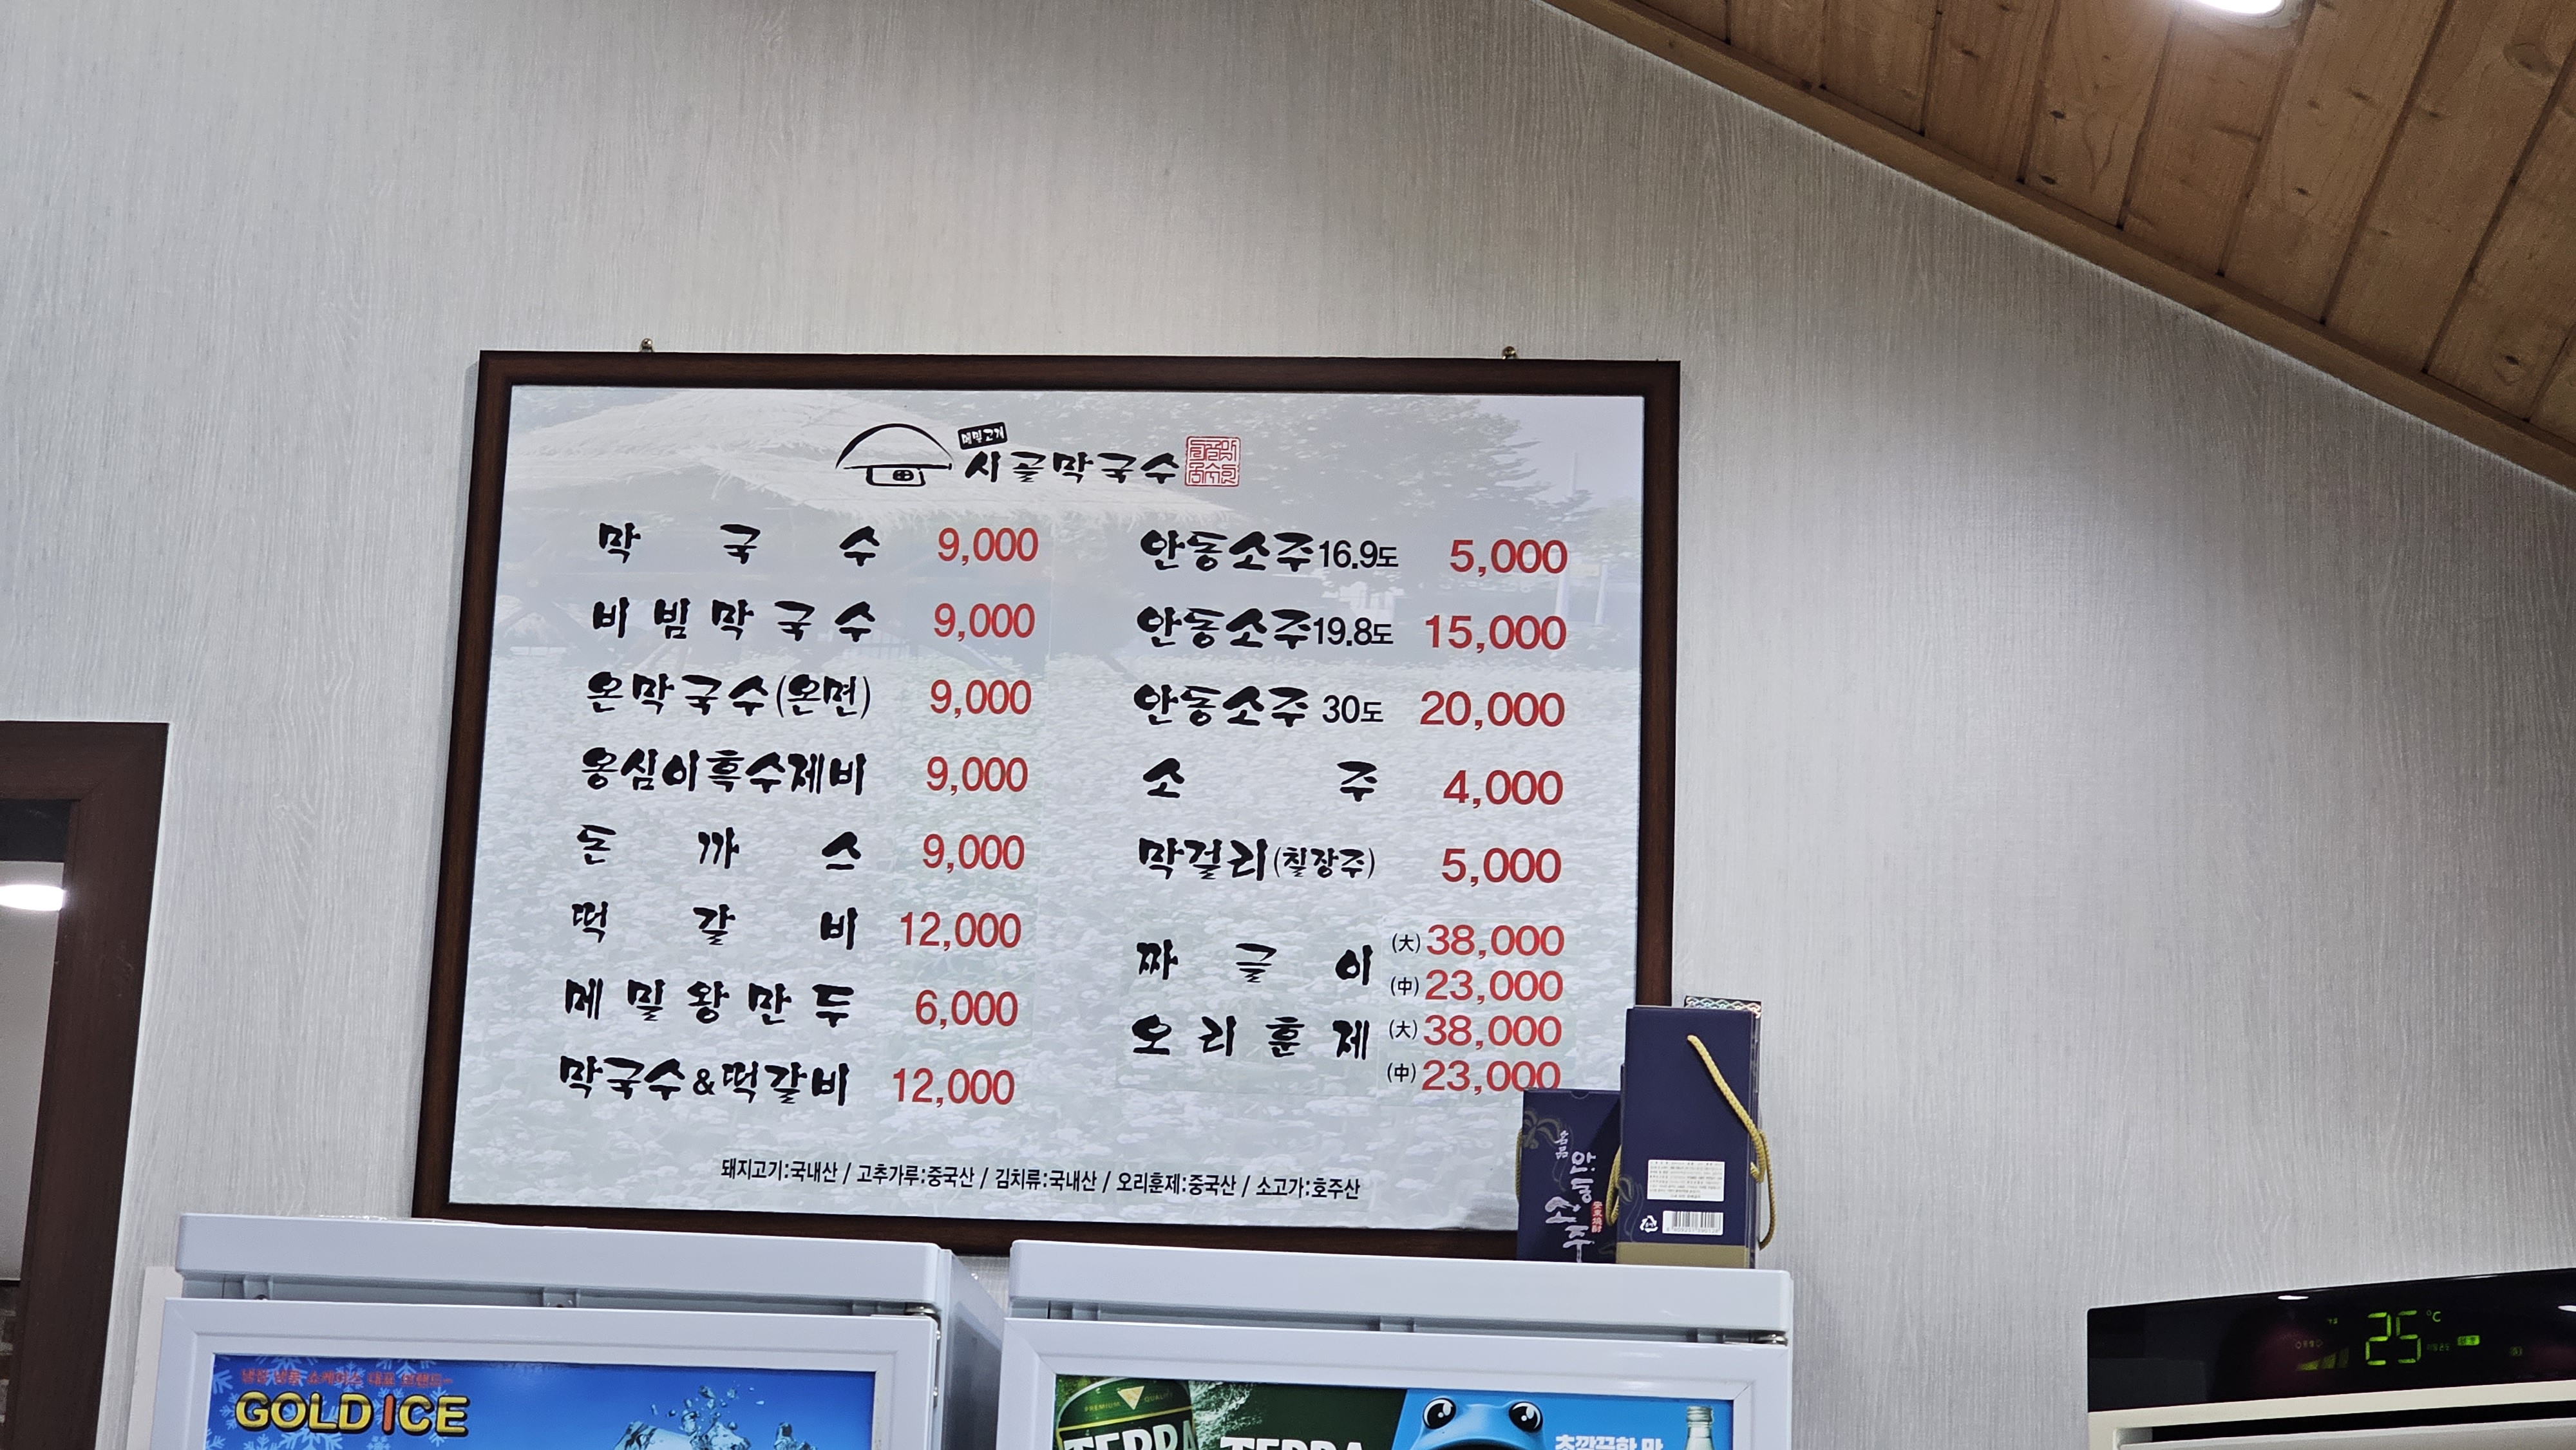 메밀고기
시골막국수
막국수 9,000
비빔막국수 9,000
온막국수(온면) 9,000
옹심이흑수제비 9,000
돈까스 9,000
떡갈비 12,000
메밀왕만두 6,000
막국수&떡갈비 12,000
안동소주16.9도 5,000
안동소주19.8도 15,000
안동소주 30도 20,000
소주 4,000
막걸리(칠장주) 5,000
짜글이 (大) 38,000
(中) 23,000
오리훈제 (大) 38,000
(中) 23,000
돼지고기:국내산 / 고추가루:중국산 / 김치류:국내산 / 오리훈제:중국산 / 소고가:호주산
名品
안동
소주
GOLD ICE
PREMIUM QUALITY
TERRA
TERRA
초깔끔한 맛
25 °C